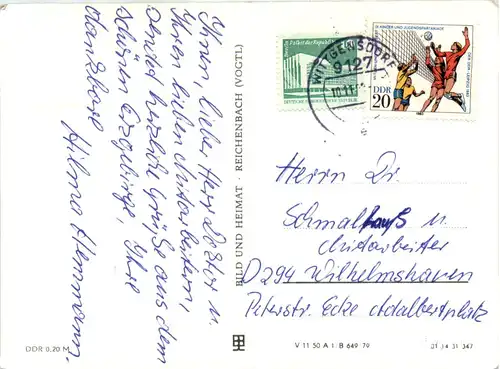 Ihnen lieber Herr Doktor u.
Ihren lieben Mitarbeitern,
sendet herzliche Grüße aus dem
schönen Erzgebirge, Ihre
dankbare
Hilma Hemmann.
BILD UND HEIMAT · REICHENBACH (VOGTL)
DDR 0,20 M
Palast der Republik
WITTGENSDORF
9127
DDR
20
Herrn Dr.
Schmalfuß u.
Mitarbeiter
D294 Wilhelmshaven
Peterstr. Ecke Adalbertplatz
V 11 50 A I B 649 79
01 14 31 347